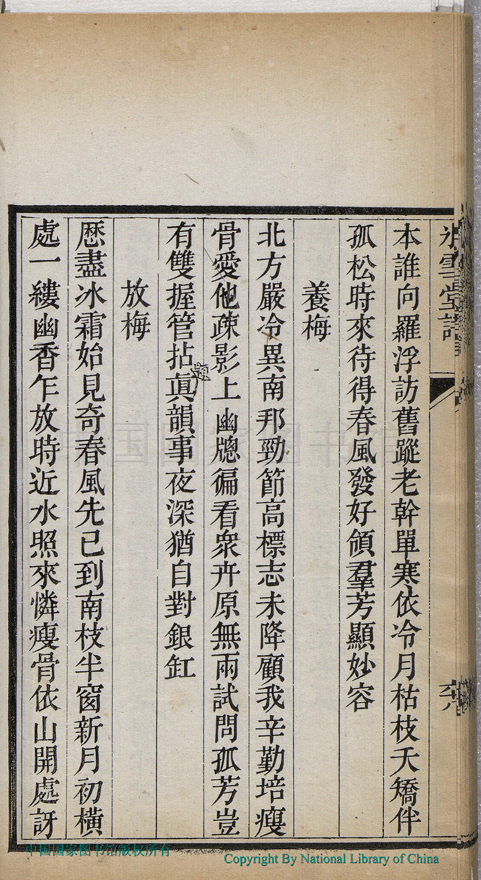 冰雪堂詩
本誰向羅浮訪舊蹤老幹單寒依冷月枯枝夭矯伴
孤松時來待得春風發好領羣芳顯妙容
養梅
北方嚴冷異南邦勁節高標志未降顧我辛勤培瘦
骨愛他疎影上幽牕徧看衆卉原無兩試問孤芳豈
有雙握管拈題眞韻事夜深猶自對銀缸
放梅
歷盡冰霜始見奇春風先已到南枝半窗新月初橫
處一縷幽香乍放時近水照來憐瘦骨依山開處訝
中国国家图书馆版权所有
Copyright By National Library of China